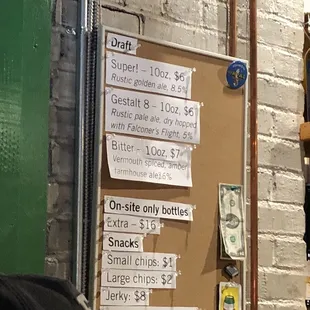 Draft
Super! - 10oz, $6
Rustic golden ale, 8.5%
Gestalt 8 - 10oz, $6
Rustic pale ale, dry hopped
with Falconer's Flight, 5%
Bitter - 10oz, $7
Vermouth spiced, amber
farmhouse ale
On-site only bottles
Extra - $16
Snacks
Small chips: $1
Large chips: $2
Jerky: $8